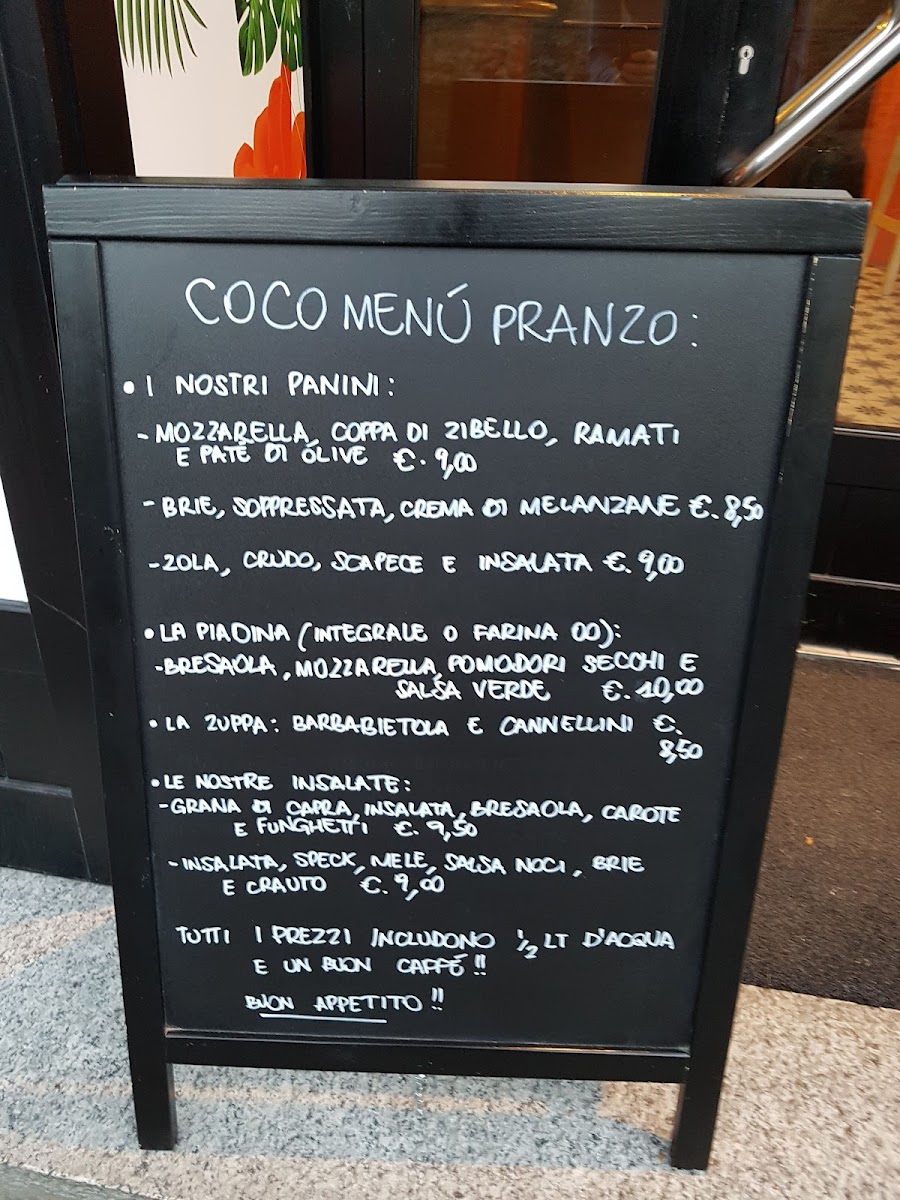 COCO MENÚ PRANZO:
• I NOSTRI PANINI:
- MOZZARELLA, COPPA DI ZIBELLO, RAMATI
E PATÈ DI OLIVE €. 9,00
- BRIE, SOPPRESSATA, CREMA DI MELANZANE €. 8,50
- ZOLA, CRUDO, SCAPECE E INSALATA €. 9,00
• LA PIADINA (INTEGRALE O FARINA 00):
- BRESAOLA, MOZZARELLA, POMODORI SECCHI E
SALSA VERDE €. 10,00
• LA ZUPPA: BARBABIETOLA E CANNELLINI €.
8,50
• LE NOSTRE INSALATE:
- GRANA DI CAPRA, INSALATA, BRESAOLA, CAROTE
E FUNGHETTI €. 9,50
- INSALATA, SPECK, MELE, SALSA NOCI, BRIE
E CRAUTO €. 9,00
TUTTI I PREZZI INCLUDONO 1/2 LT D'ACQUA
E UN BUON CAFFÉ!!
BUON APPETITO!!